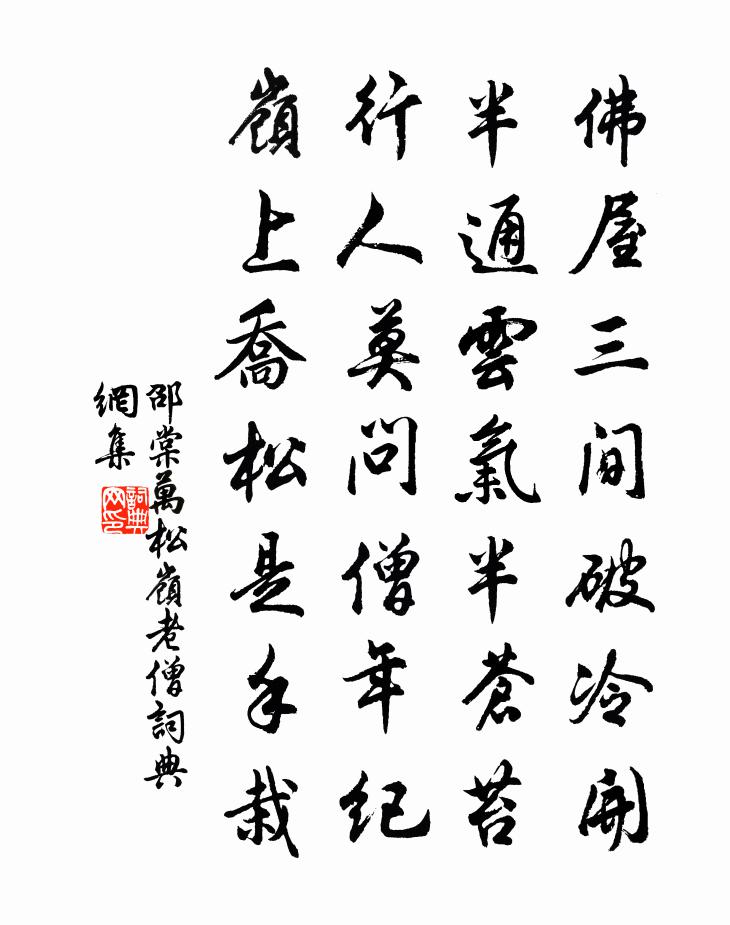 佛屋三间破冷開
半通雲氣半蒼苔
行人莫問僧年纪
嶺上喬松是手栽
邵棠萬松嶺老僧詞典
網集
詞典
网印